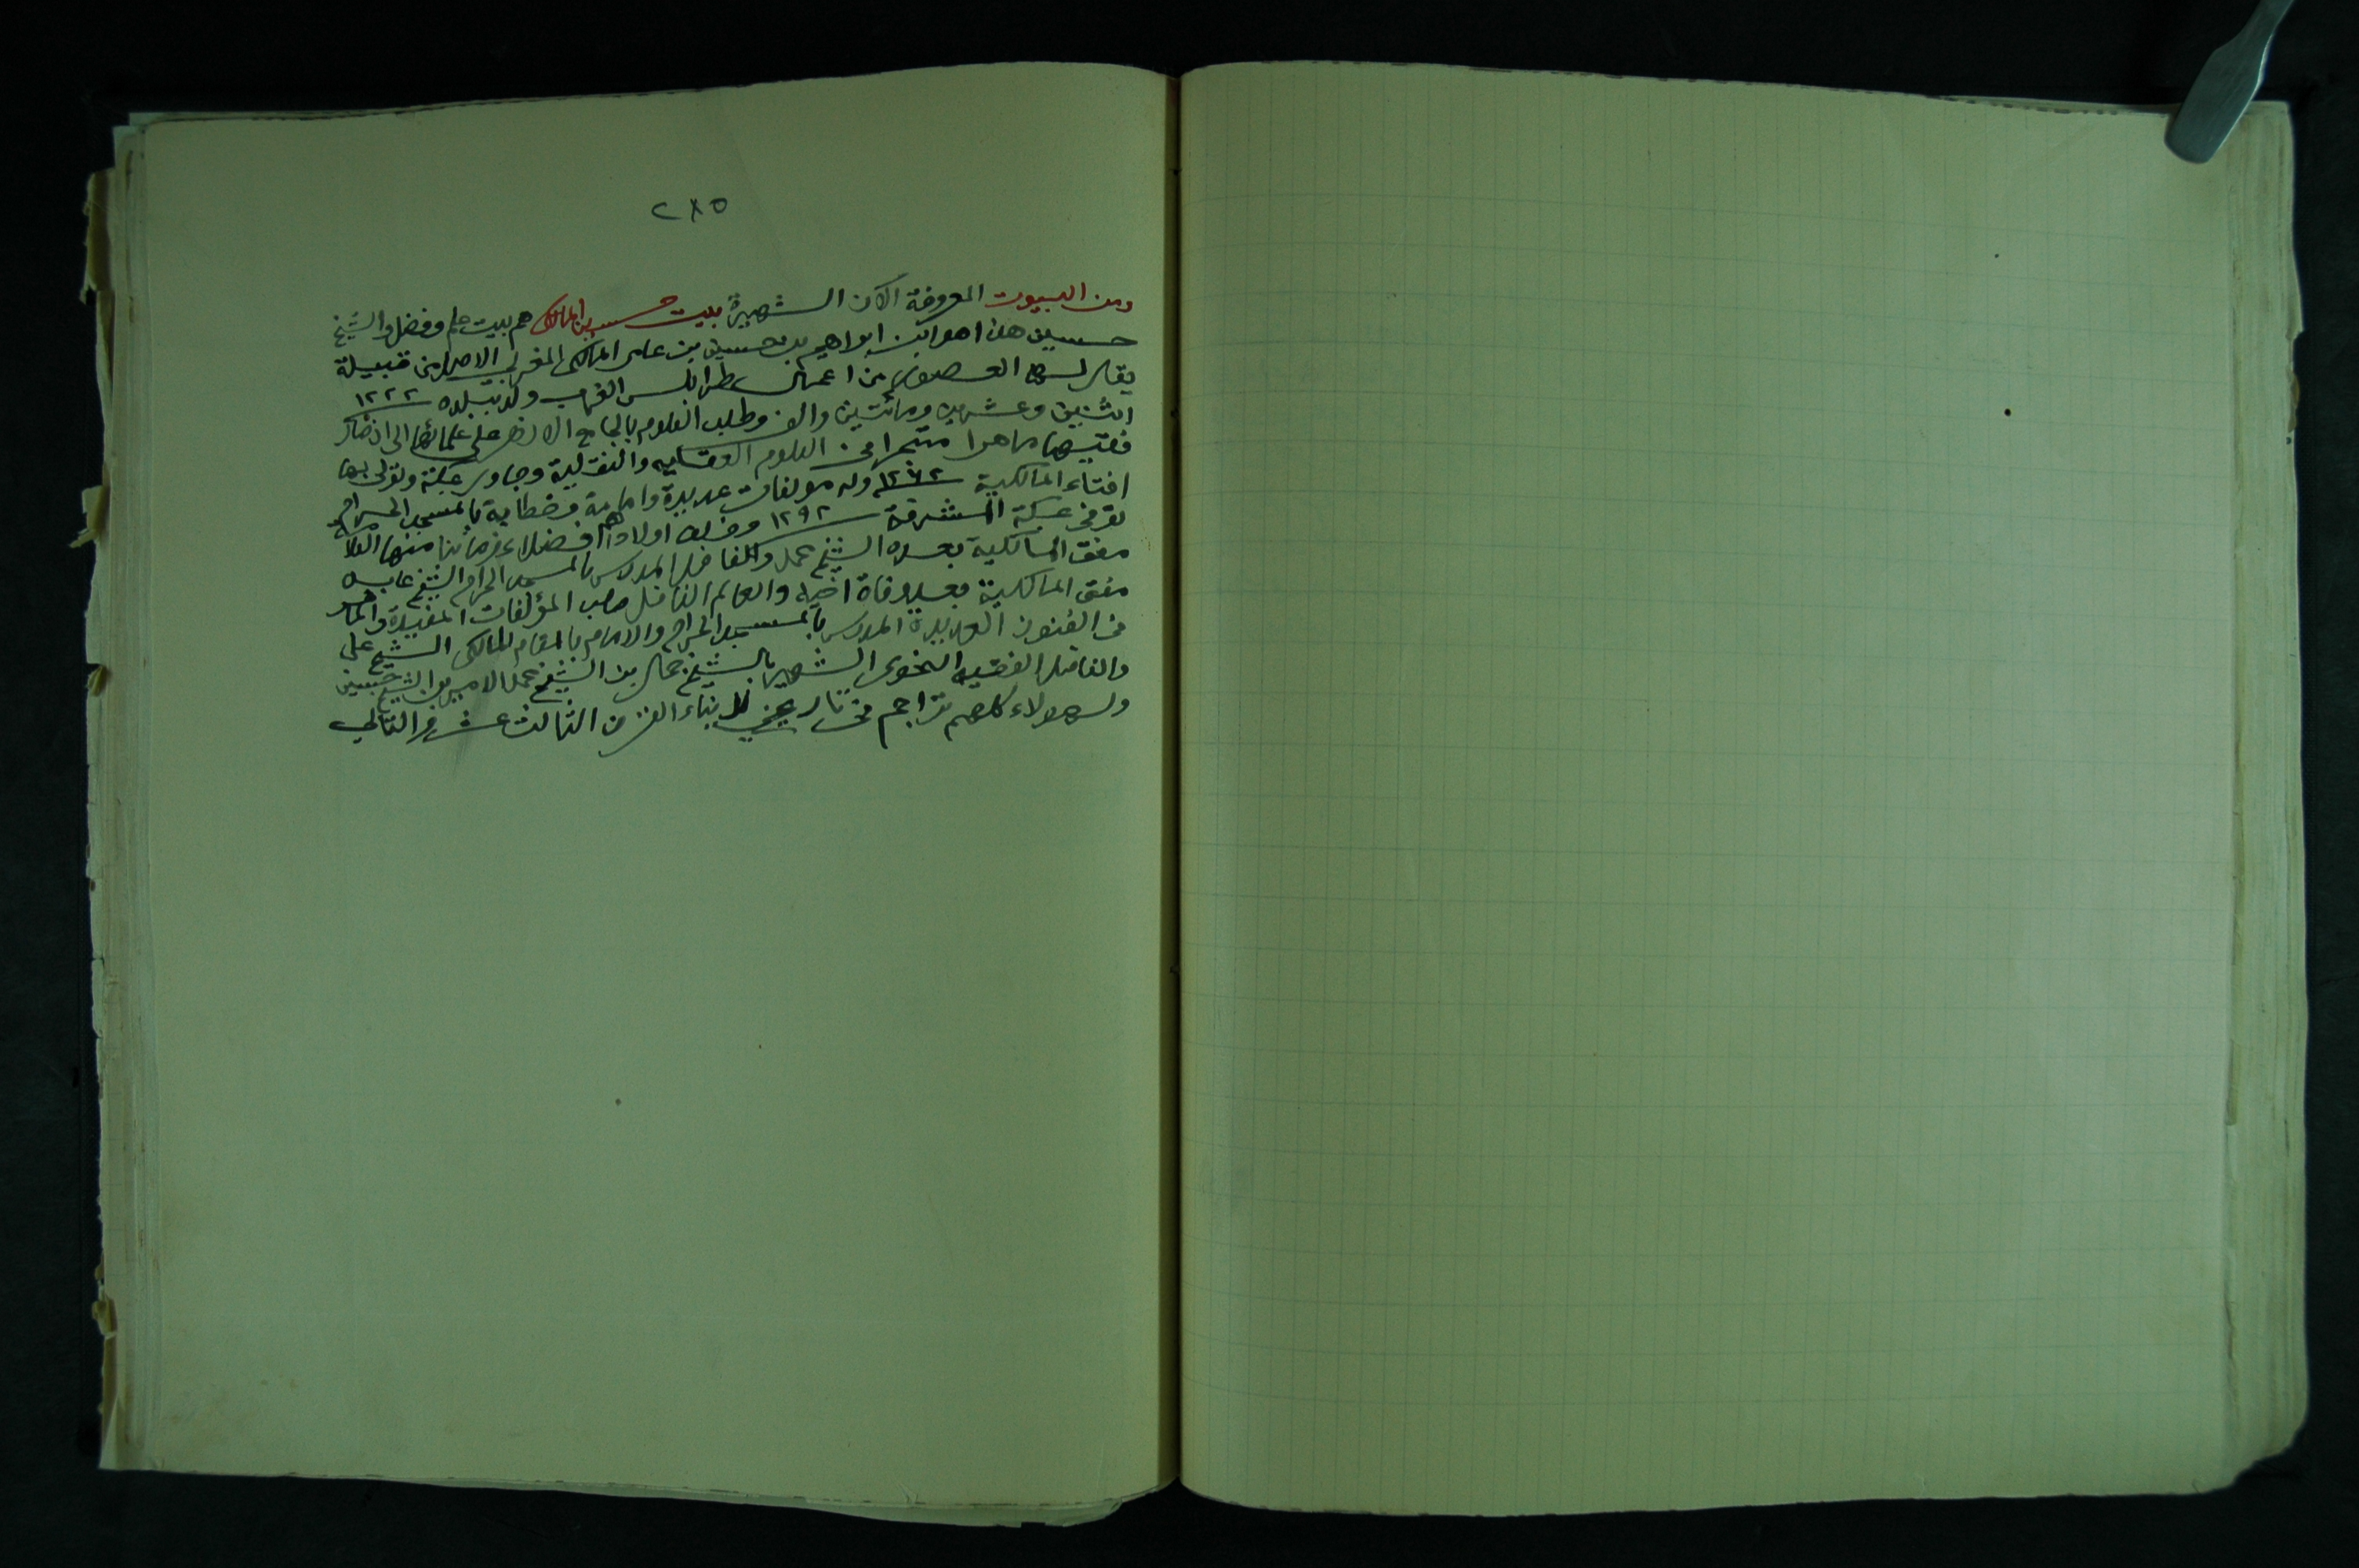 ٢٨٥
ومن البيوت المعروفة الآن الشهيرة بيت حسين المالكى هم بيت علم وفضل والشيخ
حسين هذا هو ابن ابراهيم بن حسين بن عامر المالكى المغربى الاصل من قبيلة
يقال لها العصور من اعمال طرابلس الغرب ولد ببلده سنة ١٢٢٢
اثنين وعشرين ومائتين والف وطلب العلوم بالجامع الازهر على علمائها الى ان صار
فقيها ماهرا متبحرا فى العلوم العقليه والنقلية وجاور بمكة وتولى بها
افتاء المالكية سنة ١٢٦٢ وله مولفات عديدة وامامة وخطابة بالمسجد الحرام
توفى بمكة المشرفة سنة ١٢٩٢ وخلف اولادا فضلاء منها العلامة
مفتى المالكية بعده الشيخ محمد والفاضل المدرس بالمسجد الحرام الشيخ عابد
مفتى المالكية بعد وفاة اخيه والعالم الفاضل صاحب المؤلفات المفيدة والماهر
فى الفنون العديدة المدرس بالمسجد الحرام والامام بالمقام المالكى الشيخ على
والفاضل الفقيه النحوى الشهير بالشيخ جمال بن الشيخ محمد الامير بن الشيخ حسين
ولهولاء كلهم تراجم فى تاريخى لابناء القرن الثالث عشر والتالى